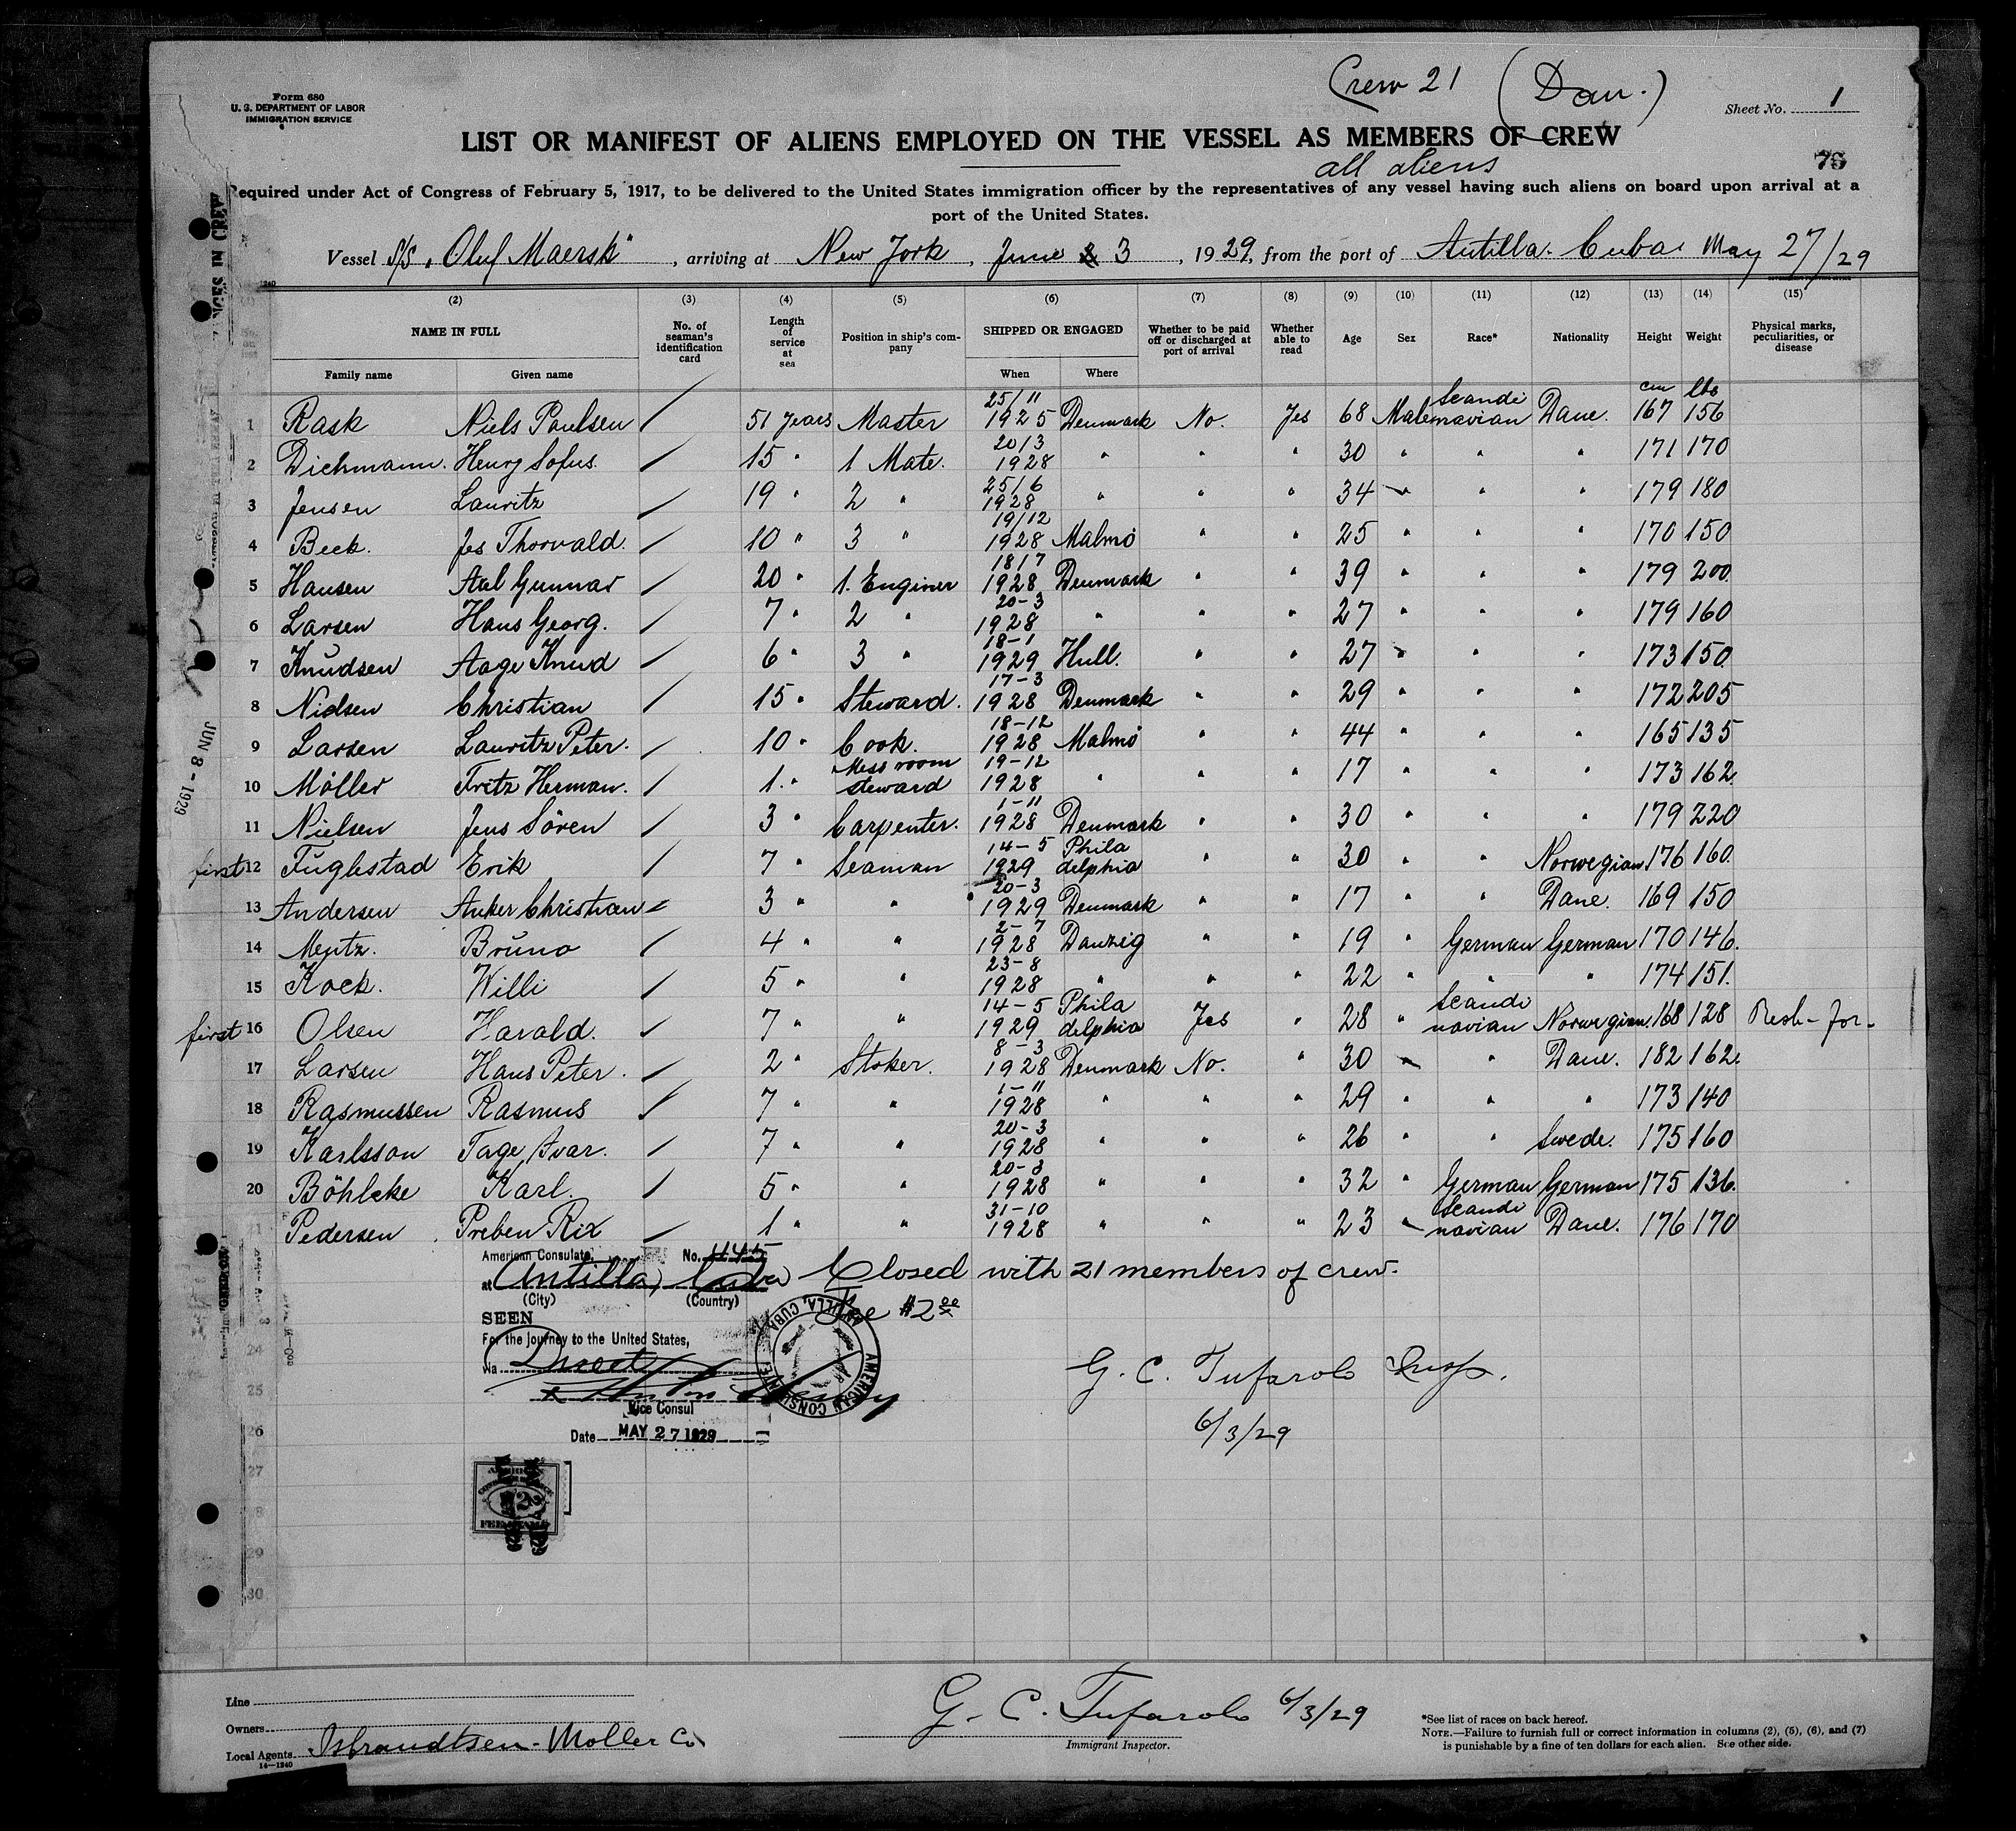 Crew 21 (Dan.)
Form 680
U. S. DEPARTMENT OF LABOR
IMMIGRATION SERVICE
Sheet No. 1
LIST OR MANIFEST OF ALIENS EMPLOYED ON THE VESSEL AS MEMBERS OF CREW
all aliens
Required under Act of Congress of February 5, 1917, to be delivered to the United States immigration officer by the representatives of any vessel having such aliens on board upon arrival at a
port of the United States.
Vessel S/S "Oluf Maersk", arriving at New York, June 3, 1929, from the port of Antilla. Cuba. May 27/29
(2) (3) (4) (5) (6) (7) (8) (9) (10) (11) (12) (13) (14) (15)
NAME IN FULL No. of seaman's identification card Length of service at sea Position in ship's company SHIPPED OR ENGAGED Whether to be paid off or discharged at port of arrival Whether able to read Age Sex Race* Nationality Height Weight Physical marks, peculiarities, or disease
Family name Given name When Where
cm lbs
1 Rask Niels Paulsen / 51 Years Master 25/11 1925 Denmark No. Yes 68 Male Scandinavian Dane. 167 156
2 Dichmann. Henry Sofus. / 15 " 1 Mate. 20/3 1928 " " " 30 " " " 171 170
3 Jensen Lauritz / 19 " 2 " 25/6 1928 " " " 34 " " " 179 180
4 Beck. Jes Thorvald. / 10 " 3 " 19/12 1928 Malmö " " 25 " " " 170 150
5 Hansen Axel Gunnar / 20 " 1. Enginer 18/7 1928 Denmark " " 39 " " " 179 200.
6 Larsen Hans Georg. / 7 " 2 " 20-3 1928 " " " 27 " " " 179 160
7 Knudsen Aage Knud / 6 " 3 " 18-1 1929 Hull. " " 27 " " " 173 150
8 Nielsen Christian / 15 " Steward. 17-3 1928 Denmark " " 29 " " " 172 205
9 Larsen Lauritz Peter. / 10 " Cook. 18-12 1928 Malmö " " 44 " " " 165 135
10 Möller Fritz Herman. / 1. " Mess room steward 19-12 1928 " " " 17 " " " 173 162
11 Nielsen Jens Sören / 3 " Carpenter. 1-11 1928 Denmark " " 30 " " " 179 220
first 12 Fuglestad Erik / 7 " Seaman 14-5 1929 Philadelphia " " 30 " " Norwegian 176 160.
13 Andersen Anker Christian / 3 " " 20-3 1929 Denmark " " 17 " " Dane. 169 150
14 Mentz. Bruno / 4 " " 2-7 1928 Danzig " " 19 " German German 170 146.
15 Kock. Willi / 5 " " 23-8 1928 " " " 22 " " " 174 151.
first 16 Olsen Harald. / 7 " " 14-5 1929 Philadelphia Yes " 28 " Scandinavian Norwegian. 168 128 Resh-for-
17 Larsen Hans Peter. / 2 " Stoker. 8-3 1928 Denmark No. " 30 " " Dane. 182 162.
18 Rasmussen Rasmus / 7 " " 1-11 1928 " " " 29 " " " 173 140
19 Karlsson Tage Ivar. / 7 " " 20-3 1928 " " " 26 " " Swede. 175 160
20 Böhlcke Karl. / 5 " " 20-3 1928 " " " 32 " German German 175 136.
21 Pedersen Preben Rix / 1 " " 31-10 1928 " " " 23 " Scandinavian Dane. 176 170
American Consulate, No. 1145
at Antilla, Cuba Closed with 21 members of crew.
(City) (Country)
Fee $2.00
SEEN
For the journey to the United States,
via Direct
AMERICAN CONSULATE ANTILLA, CUBA
Vice Consul
Date MAY 27 1929
G. C. Tufarolo Insp.
6/3/29
24
25
26
27
28
29
30
JUN 8 - 1929
Line
Owners
Local Agents Isbrandtsen-Moller Co
14—1240
G. C. Tufarolo 6/3/29
Immigrant Inspector.
*See list of races on back hereof.
NOTE.—Failure to furnish full or correct information in columns (2), (5), (6), and (7)
is punishable by a fine of ten dollars for each alien. See other side.